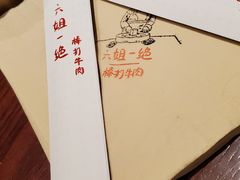 六姐一绝
棒打牛肉
六姐一绝
棒打牛肉